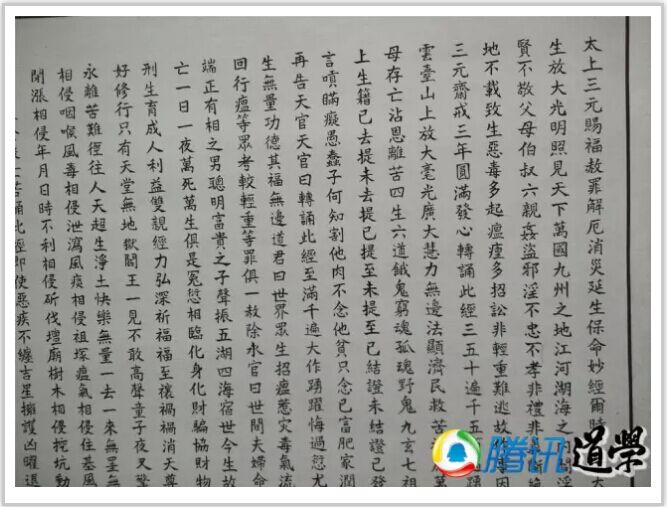 太上三元賜福赦罪解厄消災延生保命妙經爾時
生放大光明照見天下萬國九州之地江河湖海之
賢不敬父母伯叔六親姦盜邪淫不忠不孝非禮非
地不載致生惡毒多起瘟瘴多招訟非輕重難逃故
三元齋戒三年圓滿發心轉誦此經三五十遍千五
雲臺山上放大毫光廣大慧力無邊法顯濟民救苦
母存亡沾恩離苦四生六道餓鬼窮魂孤魂野鬼九玄七祖
上生籍已去提未去提已提至未提至已結證未結證已發
言嗔瞞癡愚蠢子何知割他肉不念他貧只念己富肥家潤
再告天官天官曰轉誦此經至滿千遍大作踴躍悔過愆尤
生無量功德其福無邊道君曰世界眾生招瘟惹災毒氣流
回行瘟等眾考較輕重等罪俱一赦除水官曰世間夫婦命
端正有相之男聰明富貴之子聲振五湖四海宿世今生故
亡一日一夜萬死萬生俱是冤愆相臨化身化財騙協財物
刑生育成人利益雙親經力弘深祈福福至禳禍禍消天尊
好修行只有天堂無地獄閻王一見不敢高聲童子夜叉擎
永離苦難徑往人天超生淨土快樂無量一去一來無罣無
相侵咽喉風毒相侵泄瀉風痰相侵祖塚瘟氣相侵住基風
閉漲相侵年月日時不利相侵斫伐壇廟樹木相侵挖坑動
苦誦此經即使惡疾不纏吉星擁護凶曜退
腾讯道學